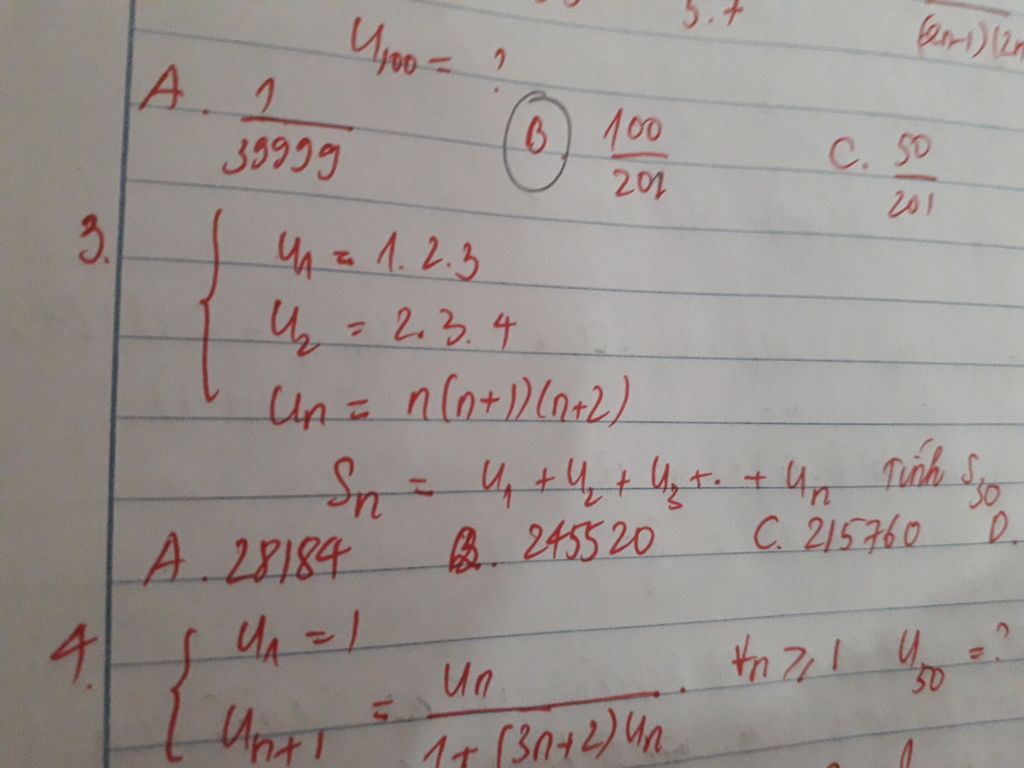 3.7 (2n-1)(2n
U₁₀₀ = ?
A. 1/39999 B 100/201 C. 50/201
3. { U₁ = 1.2.3
U₂ = 2.3.4
Un = n(n+1)(n+2)
Sn = U₁ + U₂ + U₃ + .. + Un Tính S
A. 28184 B. 245520 C. 215760 D.
4. { U₁ = 1
Un+1 = Un/1+(3n+2)Un . ∀n ⩾ 1 U₅₀ = ?